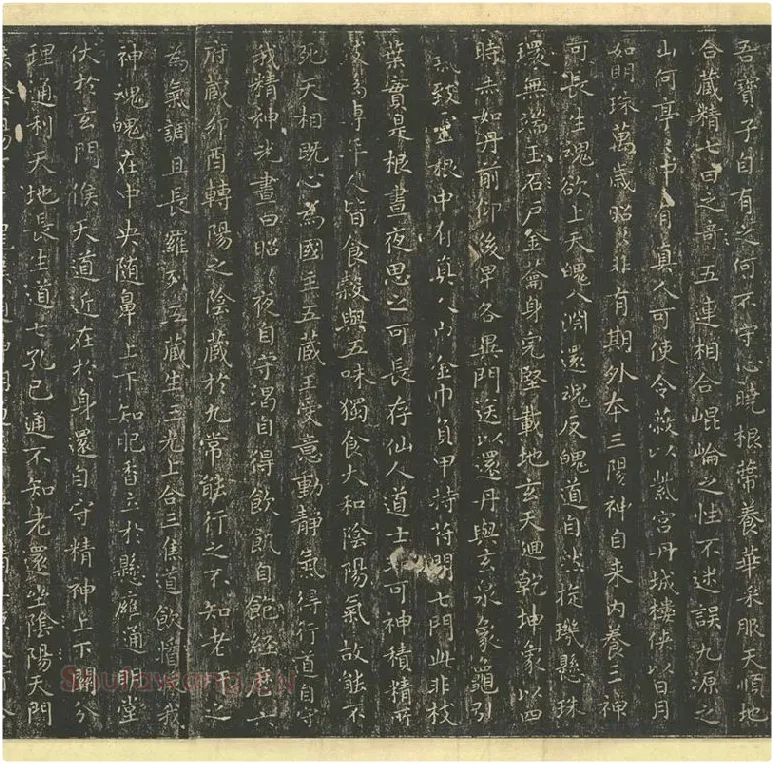 吾寶子自有之何不守心曉根蔕養華采服天順地
合藏精七日之奇五連相合崐崘之性不迷誤九原之
山何亭〻中有真人可使令蔽以紫宫丹城樓俠以日月
如明珠萬歲昭〻非有期外本三陽神自来内養三神
可長生魂欲上天魄入淵還魂反魄道自然挺璣懸珠
環無端玉石戶金籥身完堅載地玄天迴乾坤象以四
時赤如丹前仰後卑各異門送以還丹與玄泉象龜引
氣致靈根中有真人巾金巾負甲持苻開七門此非枝
葉實是根晝夜思之可長存仙人道士非可神積精所
致為專年人皆食穀與五味獨食大和陰陽氣故能不
死天相既心為國主五藏王受意動静氣得行道自守
我精神光晝日昭〻夜自守渴自得飲飢自飽經歷六
府藏卯酉轉陽之陰藏於九常能行之不知老肝之
為氣調且長羅列五藏生三光上合三焦道飲醬漿我
神魂魄在中央随鼻上下知肥香立於懸膺通明堂
伏於玄門候天道近在於身還自守精神上下關分
理通利天地長生道七孔已通不知老還坐陰陽天門
Shufawang.CN